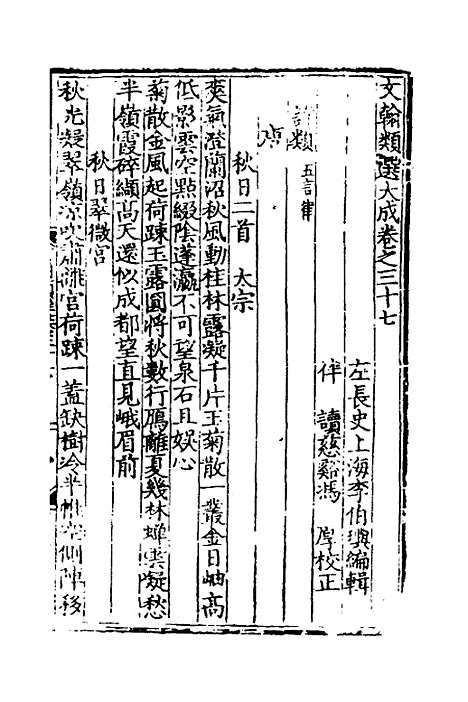 文翰類選大成卷之三十七
左長史上海李伯璵編輯
伴讀慈谿馮厚校正
詩類五言律
秋日二首 太宗
爽氣澄蘭沼秋風動桂林露凝千片玉菊散一叢金日岫高
低影雲空點綴陰蓬瀛不可望泉石且娛心
菊散金風起荷踈玉露圓將秋數行鴈離夏幾林蟬雲凝愁
半嶺霞碎纈高天還似成都望直見峨眉前
秋日翠微宮
秋光凝翠嶺凉吹肅離宮荷踈一蓋缺樹冷半帷空側陣移